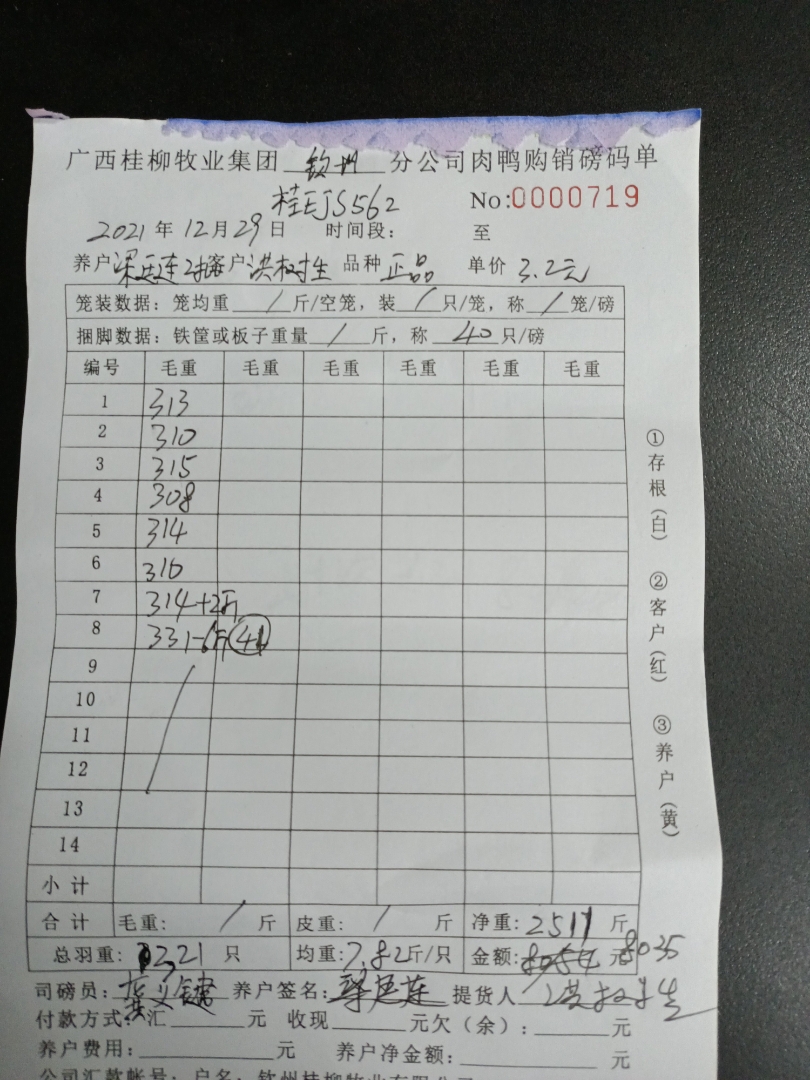 广西桂柳牧业集团 钦州 分公司肉鸭购销磅码单
桂EJS562 No:0000719
2021年12月29日 时间段: 至
养户 客户 洪权生 品种 正品 单价 3.2元
笼装数据:笼均重 / 斤/空笼,装 / 只/笼,称 / 笼/磅
捆脚数据:铁筐或板子重量 / 斤,称 40 只/磅
编号 毛重 毛重 毛重 毛重 毛重 毛重
1 313
2 310
3 315
4 308
5 314
6 310
7 314+2斤
8 331-6斤 41
9
10
11
12
13
14
小计
合计 毛重: / 斤 皮重: / 斤 净重: 2511 斤
总羽重: 321 只 均重: 7.82斤/只 金额: 8054 元 8035
司磅员: 养户签名: 提货人 洪权生
付款方式:汇 元 收现 元欠(余): 元
养户费用: 元 养户净金额: 元
公司汇款帐号:户名:钦州桂柳牧业有限公司
①存根(白) ②客户(红) ③养户(黄)